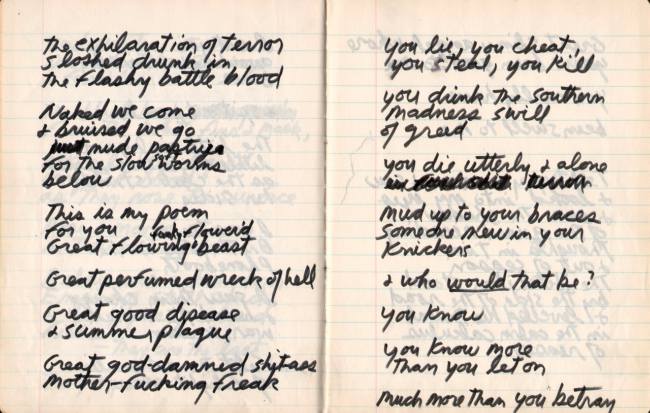 The exhilaration of terror
sloshed drunk in
the flashy battle blood
Naked we come
& bruised we go
just nude pastries
for the slow worms
below
This is my poem
for you
funky flower'd
Great flowing beast
Great perfumed wreck of hell
Great good disease
& summer plague
Great god-damned shit-ass
Mother-fucking freak
you lie, you cheat,
you steal, you kill
you drink the southern
madness swill
of greed
you die utterly & alone
in terror
mud up to your braces
Someone new in your
knickers
& who would that be?
you know
you know more
than you let on
Much more than you betray